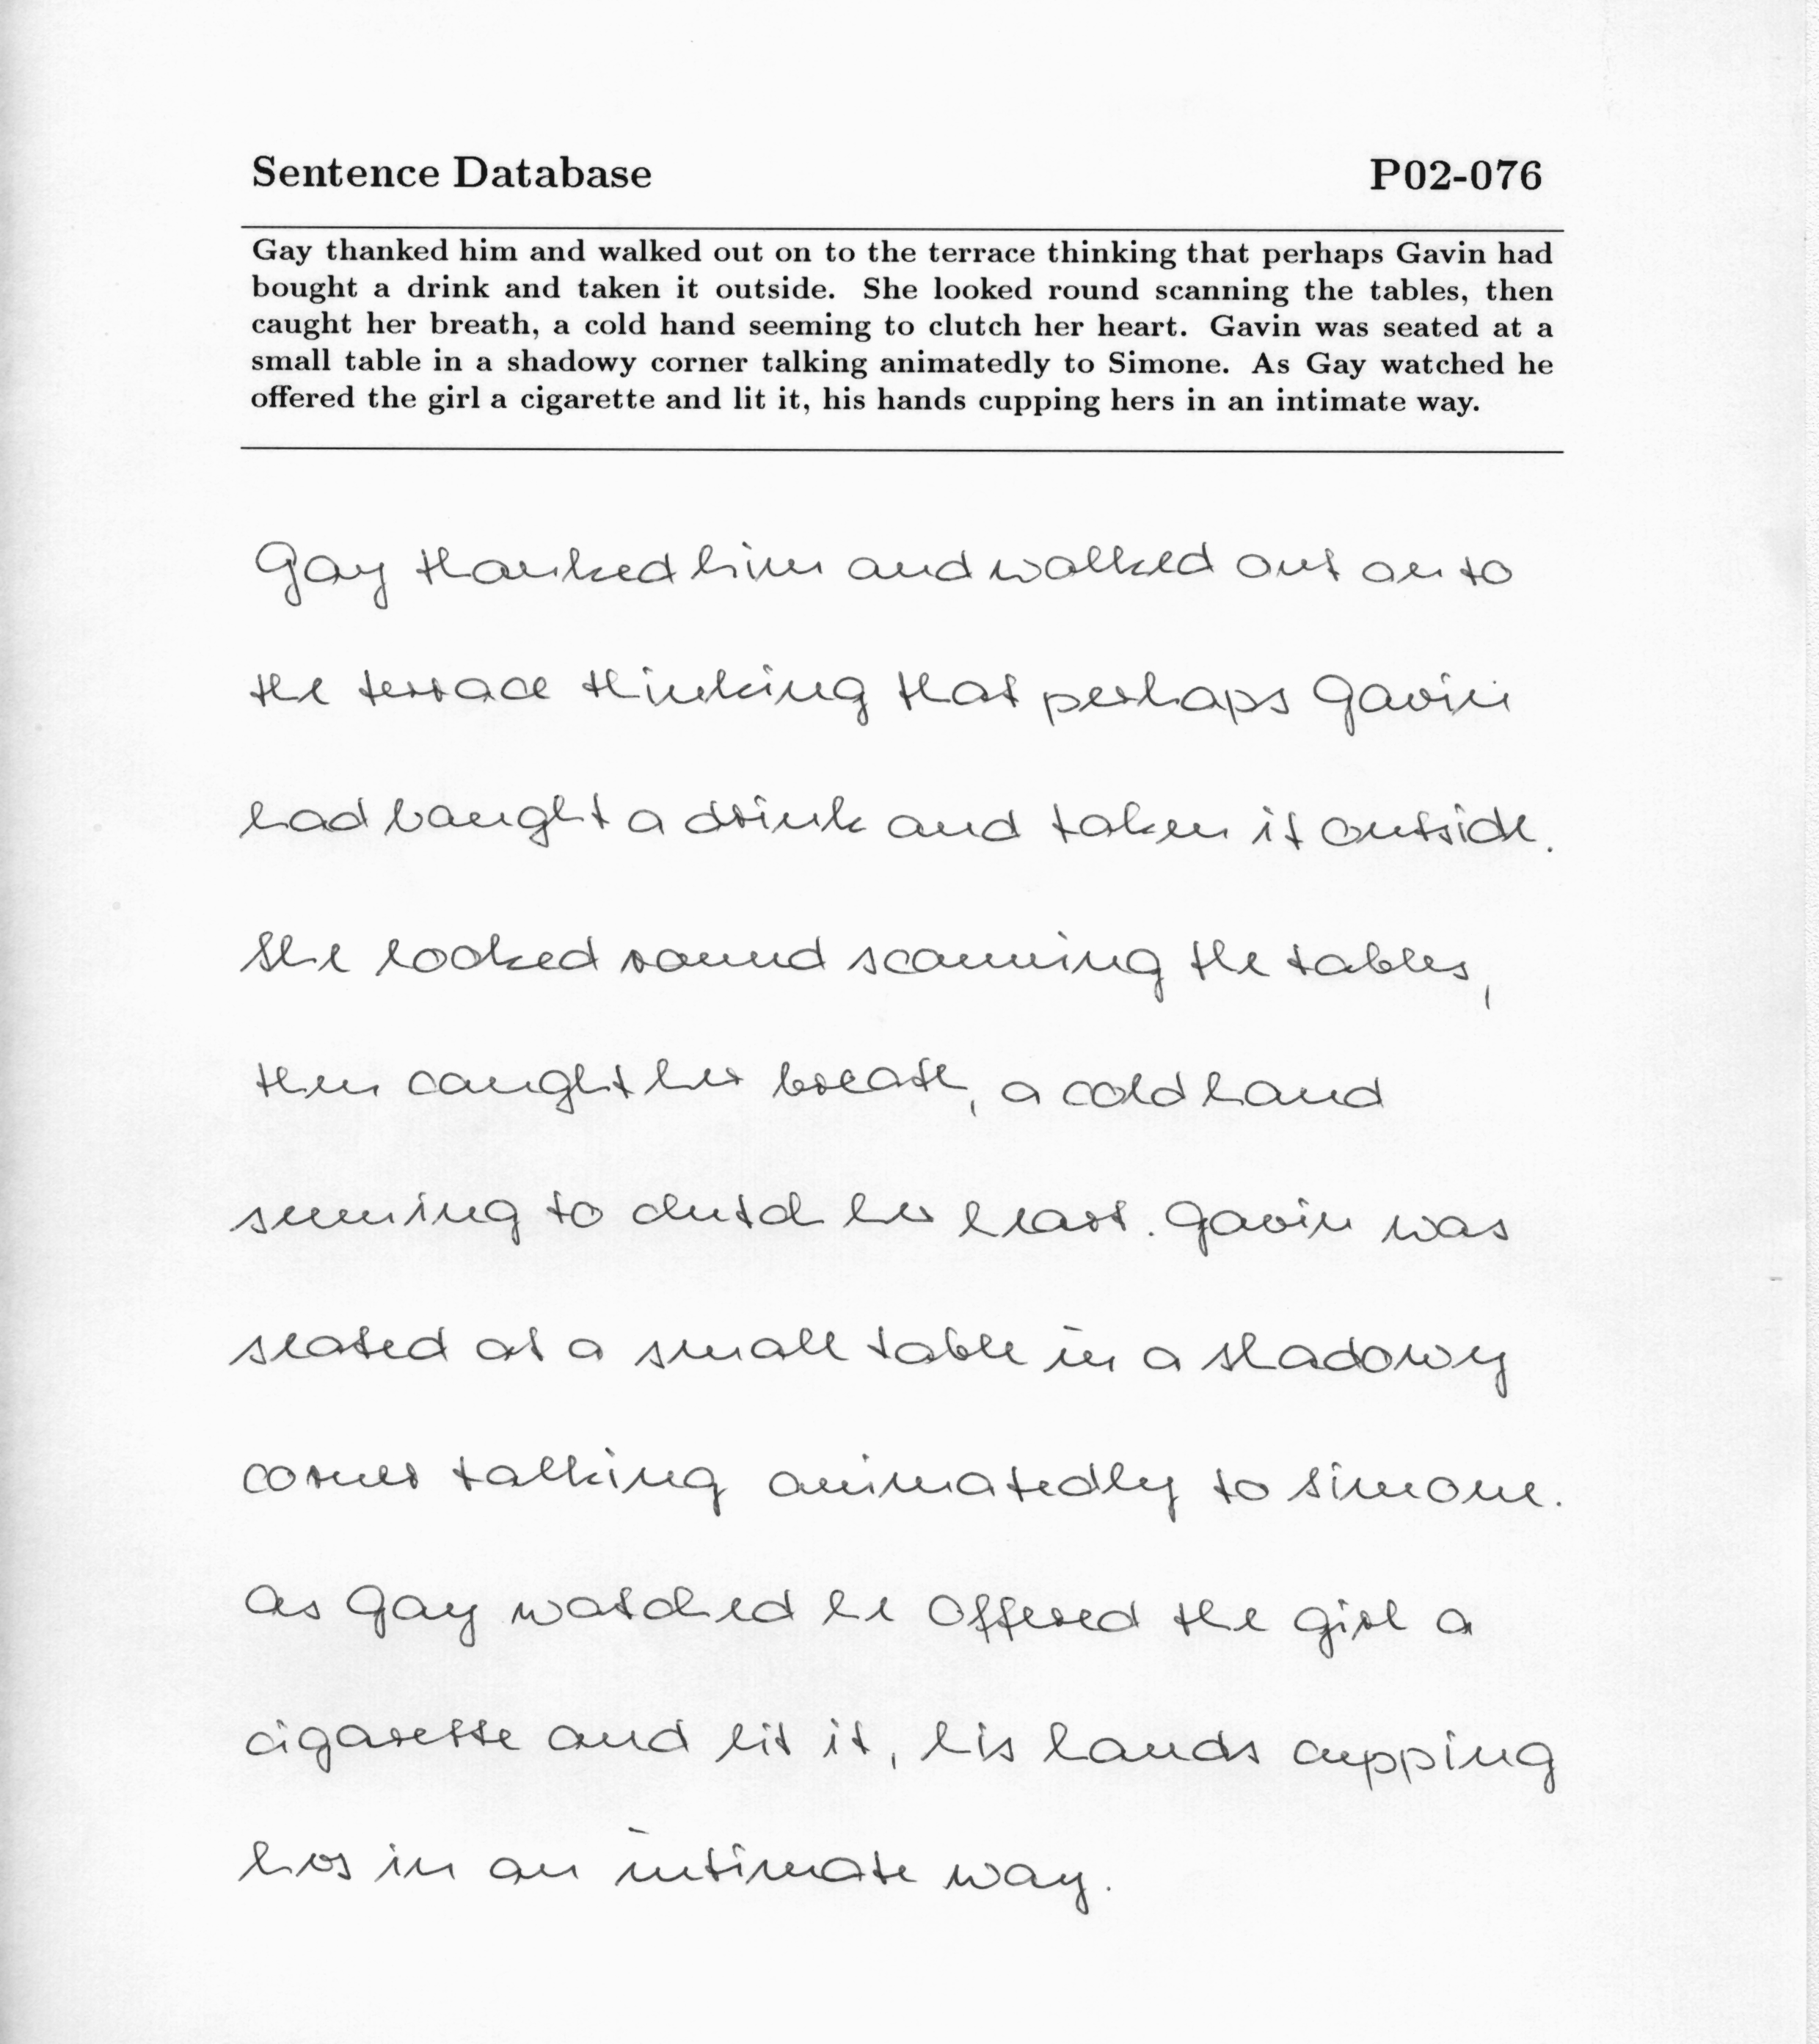 Sentence Database P02-076
Gay thanked him and walked out on to the terrace thinking that perhaps Gavin had
bought a drink and taken it outside. She looked round scanning the tables, then
caught her breath, a cold hand seeming to clutch her heart. Gavin was seated at a
small table in a shadowy corner talking animatedly to Simone. As Gay watched he
offered the girl a cigarette and lit it, his hands cupping hers in an intimate way.
Gay thanked him and walked out on to
the terrace thinking that perhaps Gavin
had bought a drink and taken it outside.
She looked round scanning the tables,
then caught her breath, a cold hand
seeming to clutch her heart. Gavin was
seated at a small table in a shadowy
corner talking animatedly to Simone.
As Gay watched he offered the girl a
cigarette and lit it, his hands cupping
hers in an intimate way.